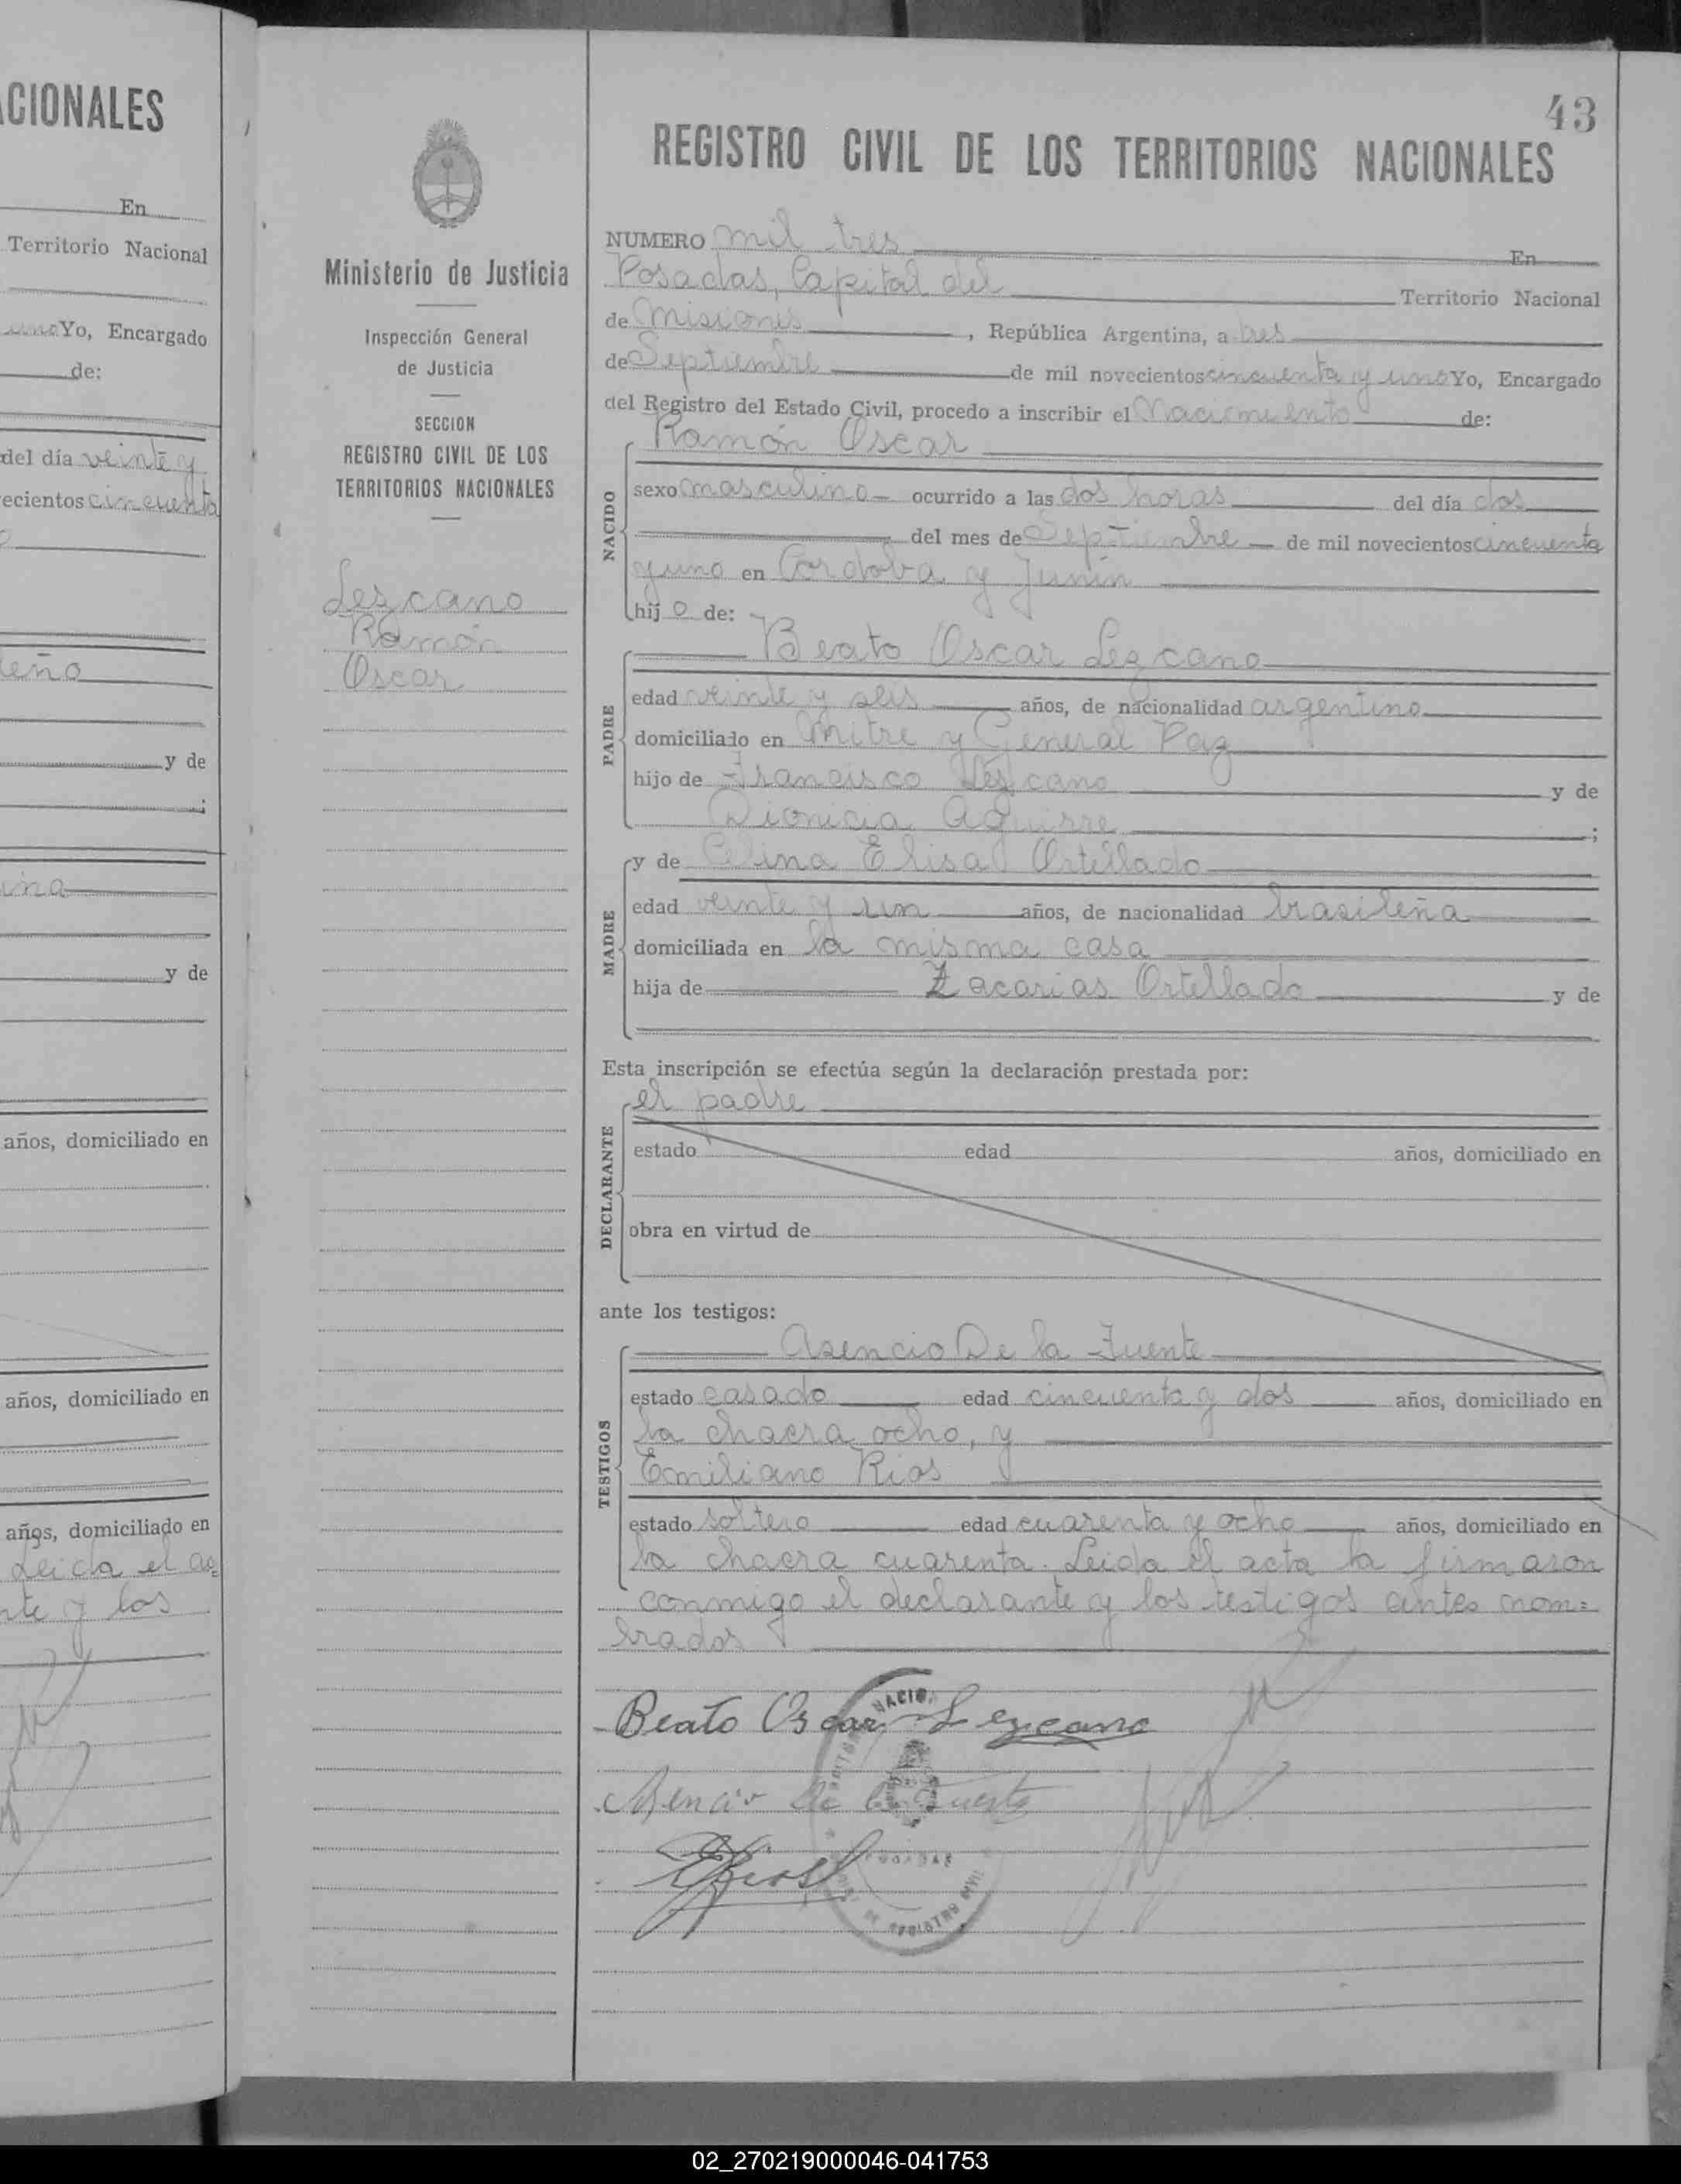 CIONALES
En
Territorio Nacional
uno Yo, Encargado
de:
del día veinte y
ecientos cincuenta
eña
y de
;
ina
y de
años, domiciliado en
años, domiciliado en
años, domiciliado en
Leida el ac=
nte y los
Ministerio de Justicia
Inspección General
de Justicia
SECCION
REGISTRO CIVIL DE LOS
TERRITORIOS NACIONALES
Lezcano
Ramón
Oscar
43
REGISTRO CIVIL DE LOS TERRITORIOS NACIONALES
NUMERO mil tres En
Posadas, Capital del Territorio Nacional
de Misiones, República Argentina, a tres
de Septiembre de mil novecientos cincuenta y uno Yo, Encargado
del Registro del Estado Civil, procedo a inscribir el Nacimiento de:
Ramón Oscar
NACIDO
sexo masculino ocurrido a las dos horas del día dos
del mes de Septiembre de mil novecientos cincuenta
y uno en Córdoba y Junín
hijo de:
Beato Oscar Lezcano
PADRE
edad veinte y seis años, de nacionalidad argentino
domiciliado en Mitre y General Paz
hijo de Francisco Lezcano y de
Dionicia Aguirre ;
y de Celina Elisa Ortellado
MADRE
edad veinte y un años, de nacionalidad brasileña
domiciliada en la misma casa
hija de Zacarias Ortellado y de
Esta inscripción se efectúa según la declaración prestada por:
el padre
DECLARANTE
estado edad años, domiciliado en
obra en virtud de
ante los testigos:
Asencio De la Fuente
TESTIGOS
estado casado edad cincuenta y dos años, domiciliado en
la chacra ocho, y
Emiliano Rios
estado soltero edad cuarenta y ocho años, domiciliado en
la chacra cuarenta. Leida el acta la firmaron
conmigo el declarante y los testigos antes nom=
brados
Beato Oscar Lezcano
Asencio de la Fuente
ERios
POSADAS
REGISTRO CIVIL
02_270219000046-041753